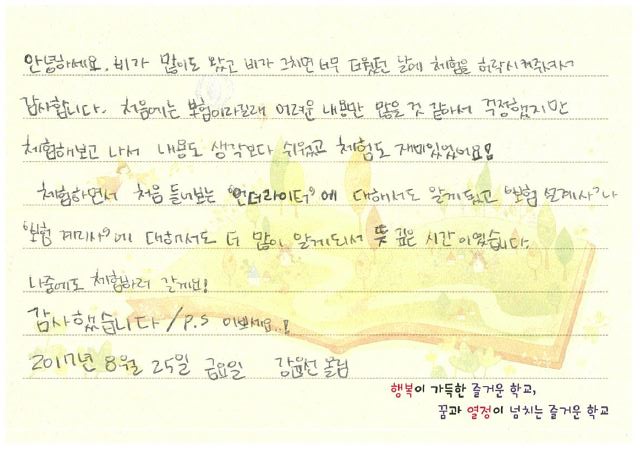 안녕하세요. 비가 많이도 왔고 비가 그치면 너무 더웠던 날에 체험을 허락시켜주셔서
감사합니다. 처음에는 보험이라길래 어려운 내용만 많을 것 같아서 걱정했지만
체험해보고 나서 내용도 생각보다 쉬웠고 체험도 재미있었어요!
체험하면서 처음 들어보는 "언더라이터"에 대해서도 알게됬고 "보험 설계사"나
"보험 계리사"에 대해서도 더 많이 알게되서 뜻 깊은 시간이였습니다.
나중에도 체험하러 갈게요!
감사했습니다 / p.s 이쁘세요..!
2017년 8월 25일 금요일 강윤선 올림
행복이 가득한 즐거운 학교,
꿈과 열정이 넘치는 즐거운 학교